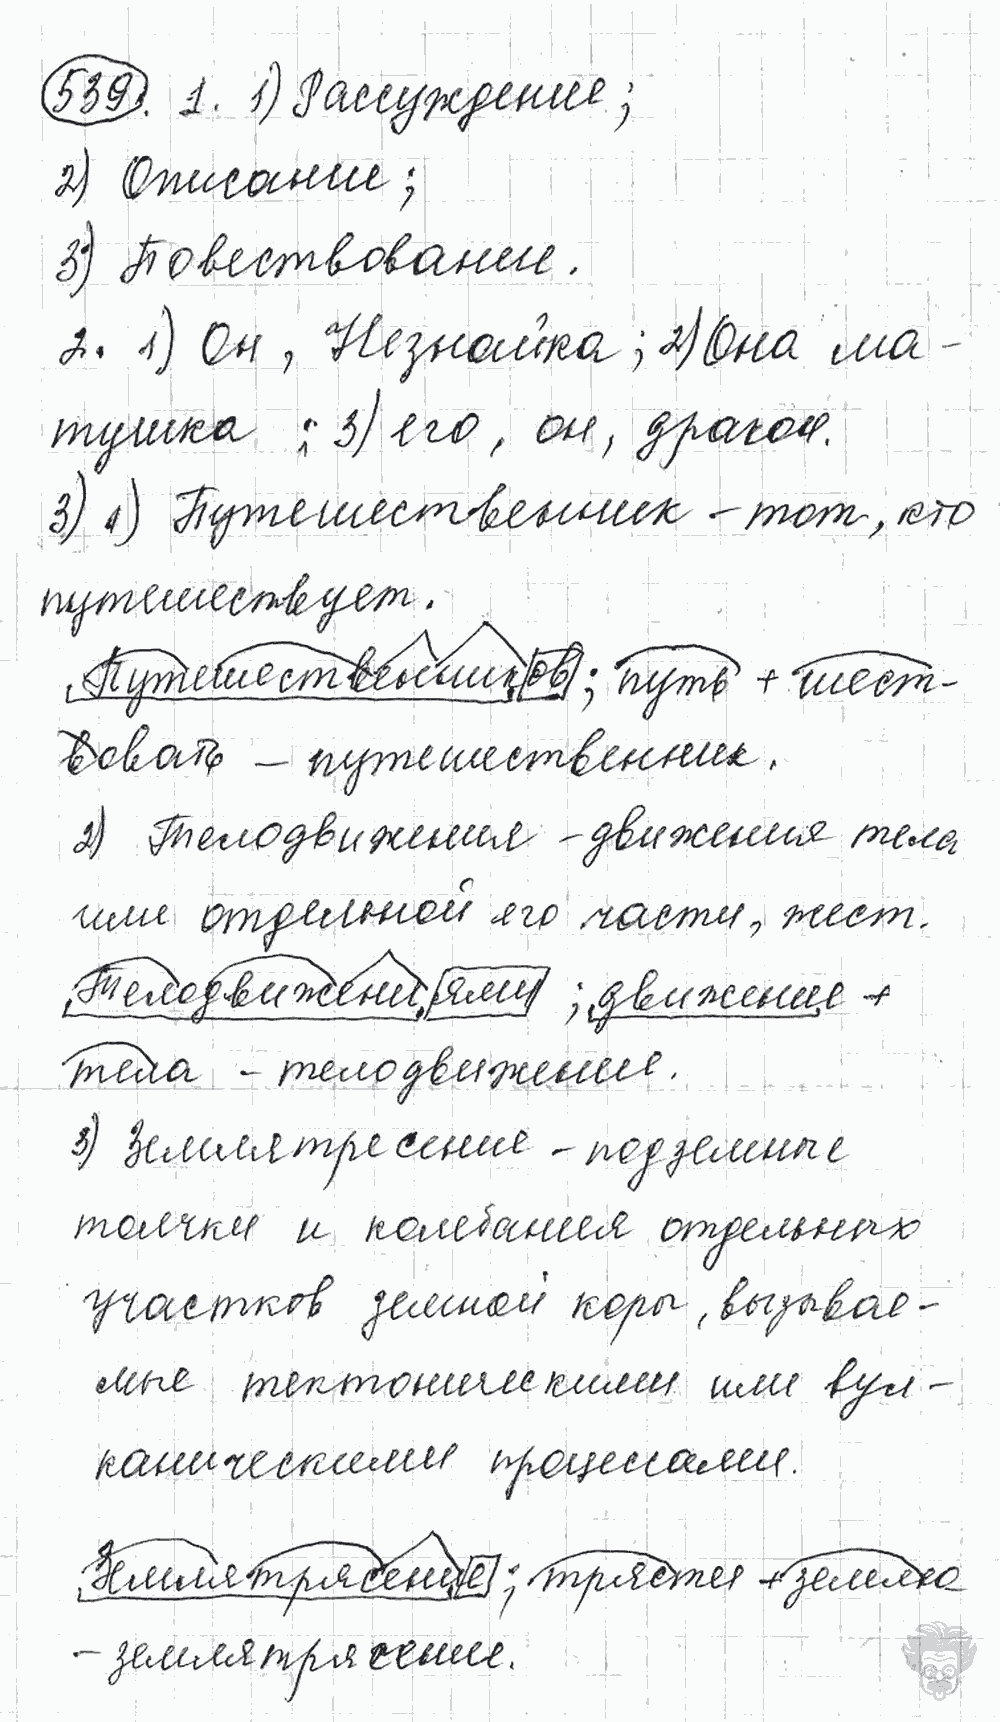 539. 1. 1) Рассуждение;
2) Описание;
3) Повествование.
2. 1) Он, Незнайка; 2) Она ма-
тушка; 3) его, он, дракон.
3) 1) Путешественник – тот, кто
путешествует.
Путешественников; путь + шест-
вовать – путешественник.
2) Телодвижения – движения тела
или отдельной его части, жест.
Телодвижениями; движение +
тела – телодвижение.
3) Землятресение – подземные
толчки и колебания отдельных
участков земной коры, вызывае-
мые тектоническими или вул-
каническими процессами.
Землятрясение; трястеи + землю
– землятрясение.